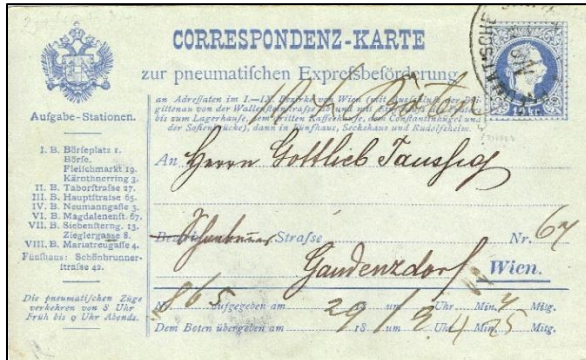 CORRESPONDENZ-KARTE
zur pneumatischen Expreßbeförderung
an Adressaten im I.–IX. Bezirke von Wien
bis zum Lagerhause, dem dritten Kaffeehause, dem Constantinhügel und
der Sofienbrücke), dann in Fünfhaus, Sechshaus und Rudolfsheim.
Aufgabe-Stationen.
I. B. Börseplatz 1.
Börse.
Fleischmarkt 19.
Kärnthnerring 3.
II. B. Taborstraße 27.
III. B. Hauptstraße 65.
IV. B. Neumanngasse 3.
VI. B. Magdalenenst. 67.
VII. B. Siebensterng. 13.
Zieglergasse 8.
VIII. B. Mariatreugasse 4.
Fünfhaus: Schönbrunner-
straße 42.
Die pneumatischen Züge
verkehren von 8 Uhr
Früh bis 9 Uhr Abends.
An Herrn Gottlieb Taussig
Schönbrunner Strasse Nr. 67
Gaudenzdorf Wien.
Nr. 865 aufgegeben am 29 um Uhr Min. Mitg.
Dem Boten übergeben am 29/ 18 um 2 Uhr 25 Min. Mitg.